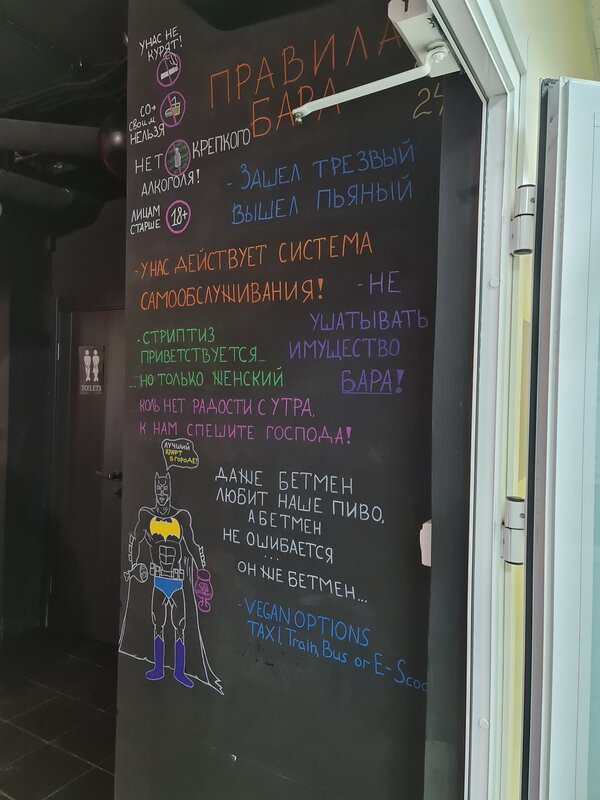 У НАС НЕ
КУРЯТ!
СО
СВОИМ
НЕЛЬЗЯ
НЕТ КРЕПКОГО
АЛКОГОЛЯ!
ЛИЦАМ
СТАРШЕ 18+
ПРАВИЛА
БАРА
- ЗАШЕЛ ТРЕЗВЫЙ
ВЫШЕЛ ПЬЯНЫЙ
- У НАС ДЕЙСТВУЕТ СИСТЕМА
САМООБСЛУЖИВАНИЯ!
- НЕ
УШАТЫВАТЬ
ИМУЩЕСТВО
БАРА!
- СТРИПТИЗ
ПРИВЕТСТВУЕТСЯ...
...НО ТОЛЬКО ЖЕНСКИЙ
КОЛЬ НЕТ РАДОСТИ С УТРА,
К НАМ СПЕШИТЕ ГОСПОДА!
TOILETS
ЛУЧШИЙ
КРАФТ
В ГОРОДЕ!
ДАЖЕ БЕТМЕН
ЛЮБИТ НАШЕ ПИВО,
А БЕТМЕН
НЕ ОШИБАЕТСЯ
...
ОН ЖЕ БЕТМЕН...
- VEGAN OPTIONS
TAXI, Train, Bus or E-Scoo